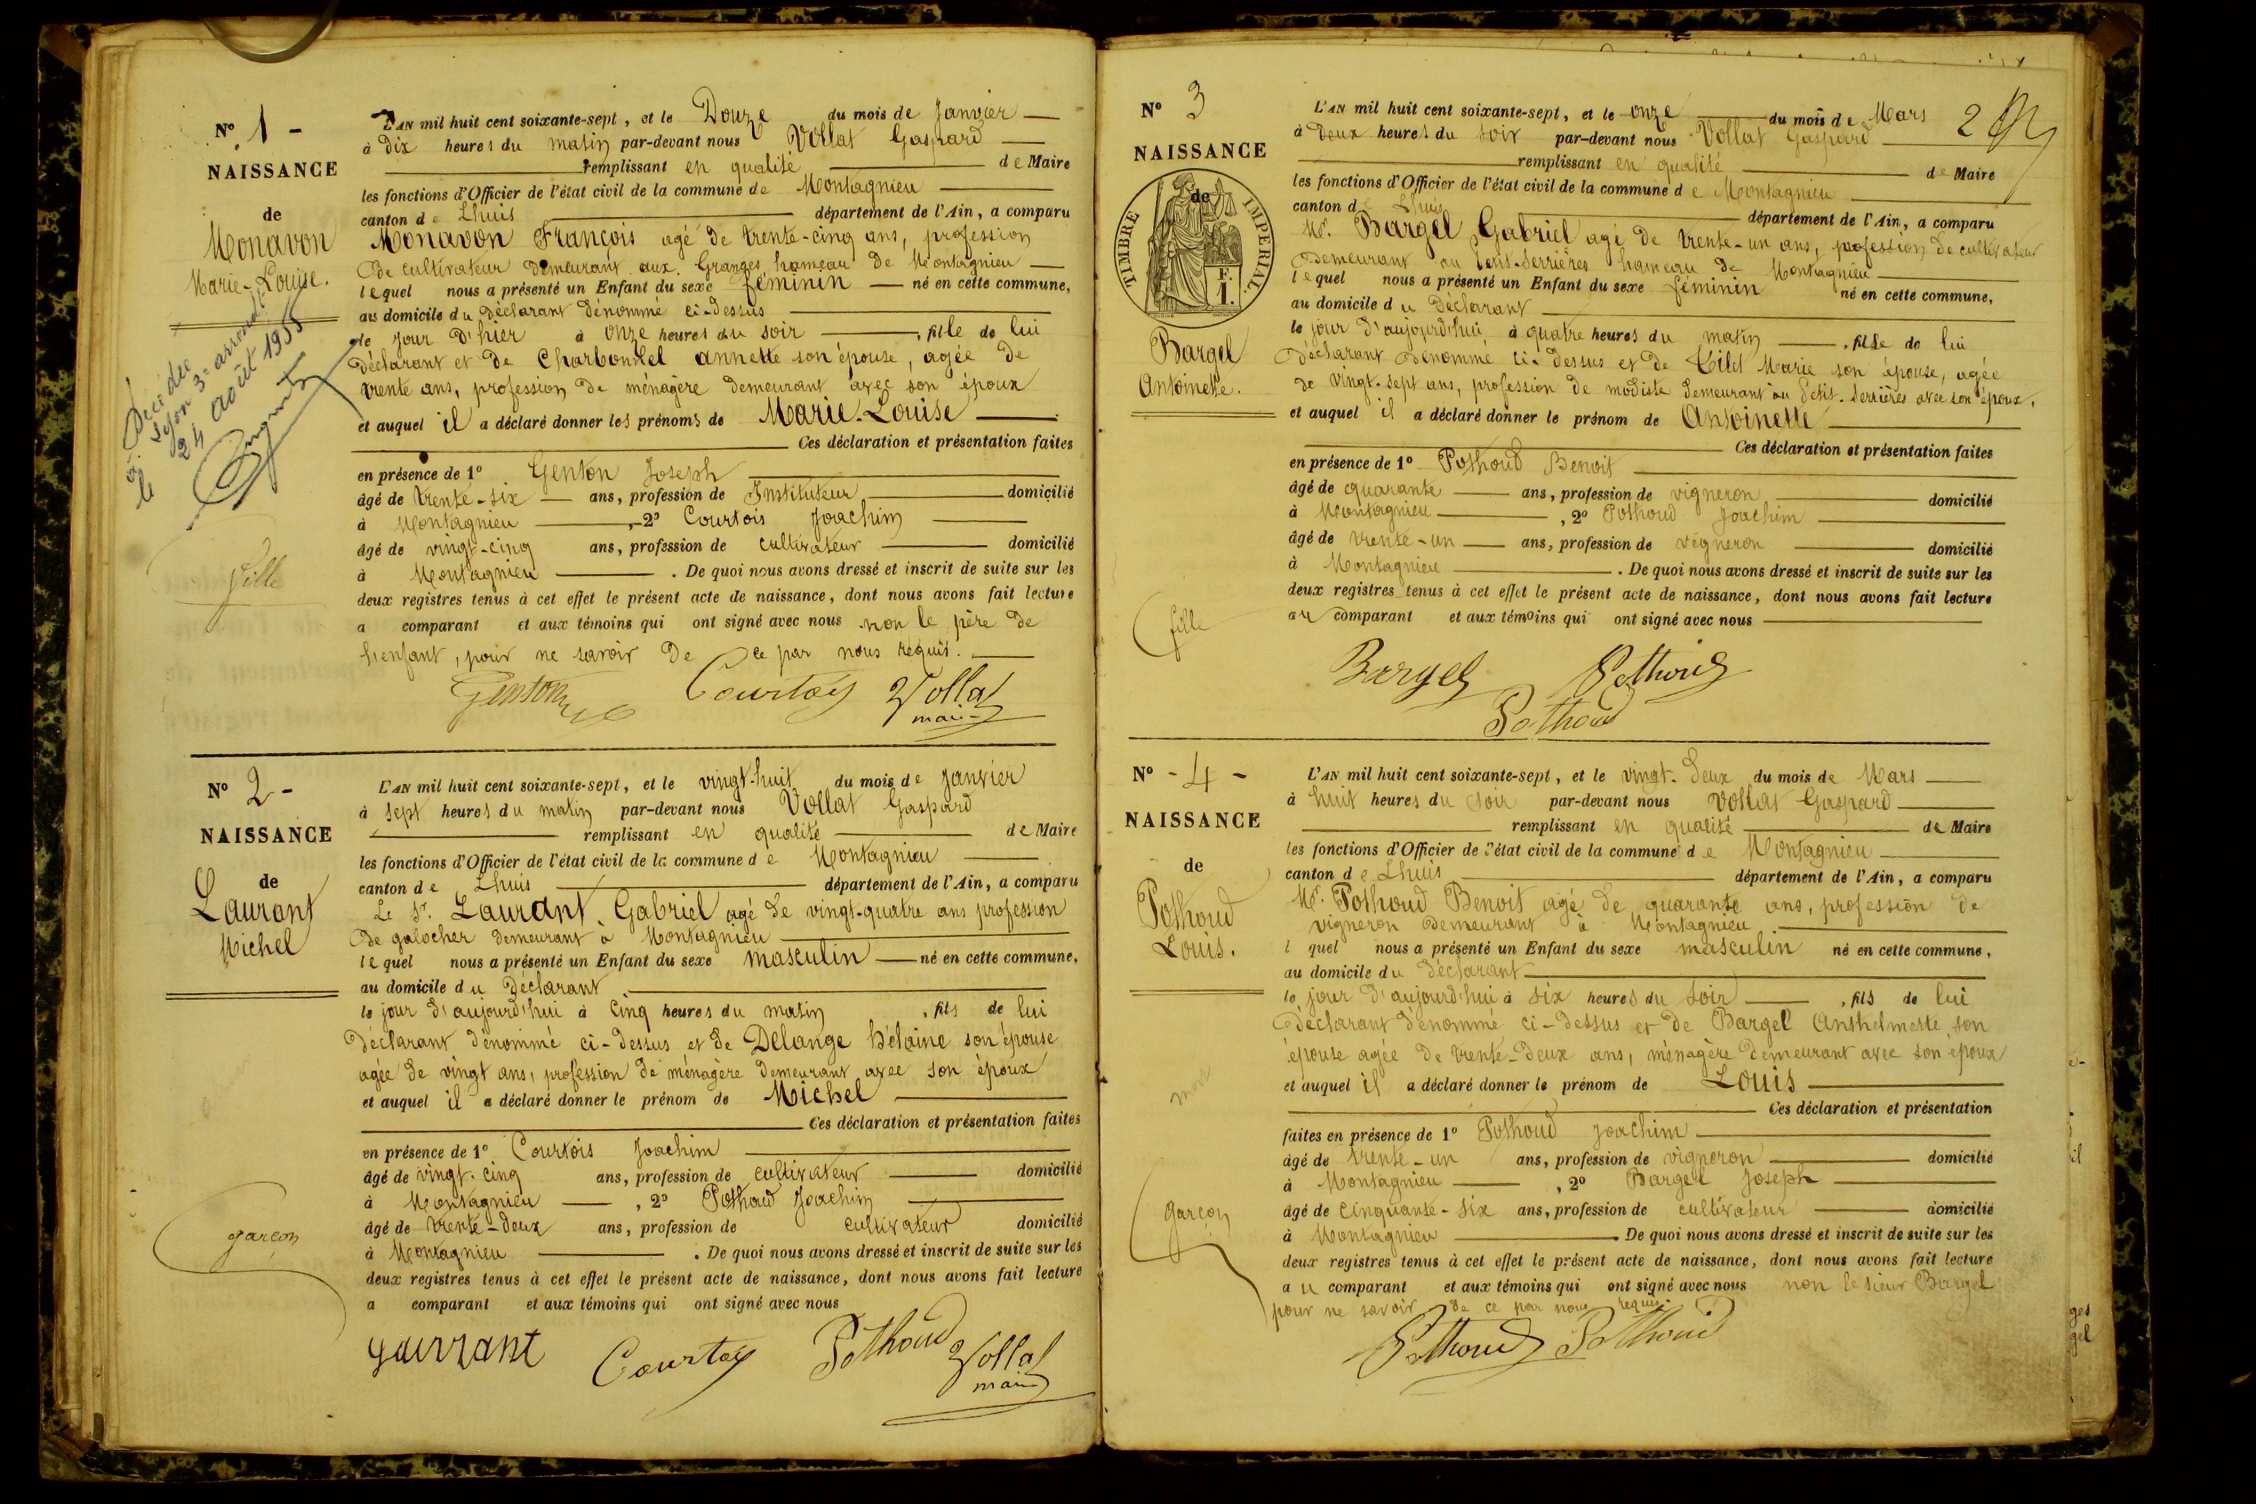 N° 1 -
NAISSANCE
de
Monavon
Marie-Louise.
Décédée
à Lyon 3e arrondt
le 24 août 1955
fille
L'AN mil huit cent soixante-sept, et le Douze du mois de Janvier
à Dix heures du matin par-devant nous Vollat Gaspard
remplissant en qualité de Maire
les fonctions d'Officier de l'état civil de la commune de Montagnieu
canton de Lhuis département de l'Ain, a comparu
Monavon François agé de trente-cinq ans, profession
de cultivateur demeurant aux Granges hameau de Montagnieu
lequel nous a présenté un Enfant du sexe féminin né en cette commune,
au domicile du déclarant dénommé ci-dessus
le jour d'hier à onze heures du soir, fille de lui
déclarant et de Charbonnel annette son épouse, agée de
trente ans, profession de ménagère demeurant avec son époux
et auquel il a déclaré donner les prénoms de Marie-Louise
Ces déclaration et présentation faites
en présence de 1° Genton Joseph
âgé de trente-six ans, profession de Instituteur domicilié
à Montagnieu, 2° Courtois Joachim
âgé de vingt-cinq ans, profession de cultivateur domicilié
à Montagnieu. De quoi nous avons dressé et inscrit de suite sur les
deux registres tenus à cet effet le présent acte de naissance, dont nous avons fait lecture
a comparant et aux témoins qui ont signé avec nous non le père de
l'enfant, pour ne savoir de ce par nous requis.
Genton Courtois Vollat
maire
N° 2 -
NAISSANCE
de
Laurant
Michel
garçon
L'AN mil huit cent soixante-sept, et le vingt-huit du mois de Janvier
à sept heures du matin par-devant nous Vollat Gaspard
remplissant en qualité de Maire
les fonctions d'Officier de l'état civil de la commune de Montagnieu
canton de Lhuis département de l'Ain, a comparu
Le Sr. Laurant Gabriel agé de vingt-quatre ans profession
de galocher demeurant à Montagnieu
lequel nous a présenté un Enfant du sexe masculin né en cette commune,
au domicile du déclarant
le jour d'aujourd'hui à cinq heures du matin, fils de lui
déclarant dénommé ci-dessus et de Delange hélaine son épouse
agée de vingt ans, profession de ménagère demeurant avec son époux
et auquel il a déclaré donner le prénom de Michel
Ces déclaration et présentation faites
en présence de 1° Courtois Joachim
âgé de vingt-cinq ans, profession de cultivateur domicilié
à Montagnieu, 2° Pothoud Joachim
âgé de trente-deux ans, profession de cultivateur domicilié
à Montagnieu. De quoi nous avons dressé et inscrit de suite sur les
deux registres tenus à cet effet le présent acte de naissance, dont nous avons fait lecture
a comparant et aux témoins qui ont signé avec nous
Laurrant Courtois Pothoud Vollat
maire
2
N° 3
NAISSANCE
de
TIMBRE IMPERIAL
Bargel
Antoinette.
fille
L'AN mil huit cent soixante-sept, et le onze du mois de Mars
à Deux heures du soir par-devant nous Vollat Gaspard
remplissant en qualité de Maire
les fonctions d'Officier de l'état civil de la commune de Montagnieu
canton d Lhuis département de l'Ain, a comparu
Mr. Bargel Gabriel agé de trente-un ans, profession de cultivateur
demeurant au Petit-Serrières hameau de Montagnieu
lequel nous a présenté un Enfant du sexe féminin né en cette commune,
au domicile du déclarant
le jour d'aujourd'hui à quatre heures du matin, fille de lui
déclarant dénommé ci-dessus et de Marie son épouse, agée
de vingt-sept ans, profession de modiste demeurant au Petit-Serrières avec son époux.
et auquel il a déclaré donner le prénom de Antoinette
Ces déclaration et présentation faites
en présence de 1° Pothoud Benoit
âgé de quarante ans, profession de vigneron domicilié
à Montagnieu, 2° Pothoud Joachim
âgé de trente-un ans, profession de vigneron domicilié
à Montagnieu. De quoi nous avons dressé et inscrit de suite sur les
deux registres tenus à cet effet le présent acte de naissance, dont nous avons fait lecture
au comparant et aux témoins qui ont signé avec nous
Bargel Pothoud
Pothoud
N° - 4 -
NAISSANCE
de
Pothoud
Louis.
mort
garçon
L'AN mil huit cent soixante-sept, et le vingt-deux du mois de Mars
à huit heures du soir par-devant nous Vollat Gaspard
remplissant en qualité de Maire
les fonctions d'Officier de l'état civil de la commune de Montagnieu
canton de Lhuis département de l'Ain, a comparu
Mr. Pothoud Benoit agé de quarante ans, profession de
vigneron demeurant à Montagnieu
l quel nous a présenté un Enfant du sexe masculin né en cette commune,
au domicile du déclarant
le jour d'aujourd'hui à six heures du soir, fils de lui
déclarant dénommé ci-dessus et de Bargel Anthelmette son
épouse agée de trente-deux ans, ménagère demeurant avec son époux
et auquel il a déclaré donner le prénom de Louis
Ces déclaration et présentation
faites en présence de 1° Pothoud Joachim
âgé de trente-un ans, profession de vigneron domicilié
à Montagnieu, 2° Bargel Joseph
âgé de cinquante-six ans, profession de cultivateur domicilié
à Montagnieu. De quoi nous avons dressé et inscrit de suite sur les
deux registres tenus à cet effet le présent acte de naissance, dont nous avons fait lecture
au comparant et aux témoins qui ont signé avec nous non le sieur Bargel
pour ne savoir de ce par nous requis.
Pothoud Pothoud